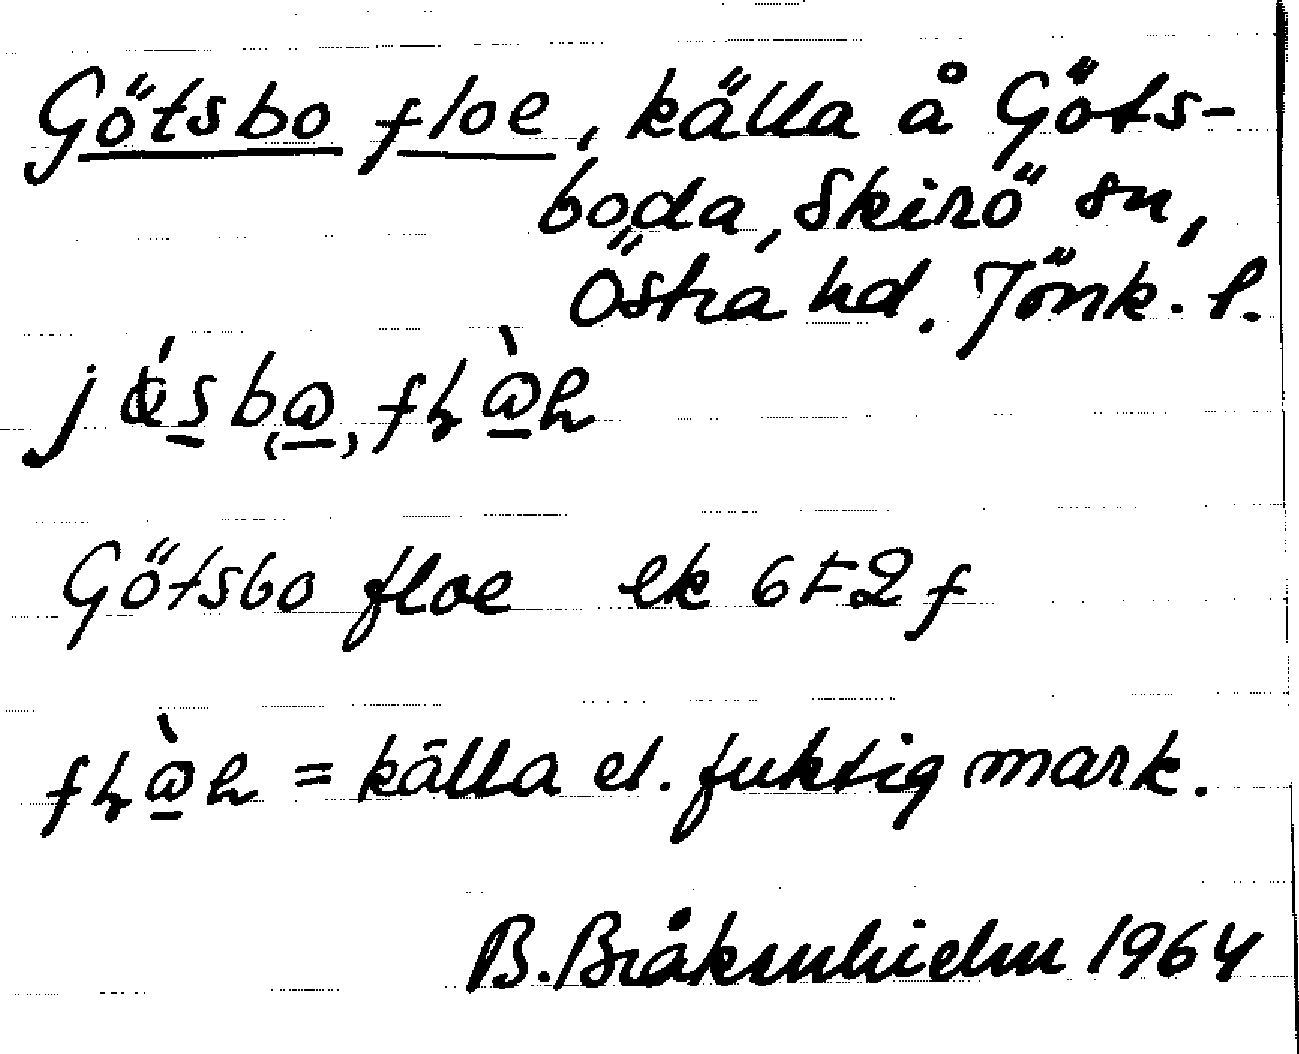 Götsbo floe, källa å Göts-
boda, Skirö sn,
Östra hd. Jönk. l.
Götsbo floe ek 6F2f
= källa el. fuktig mark.
B. Bråkenhielm 1964